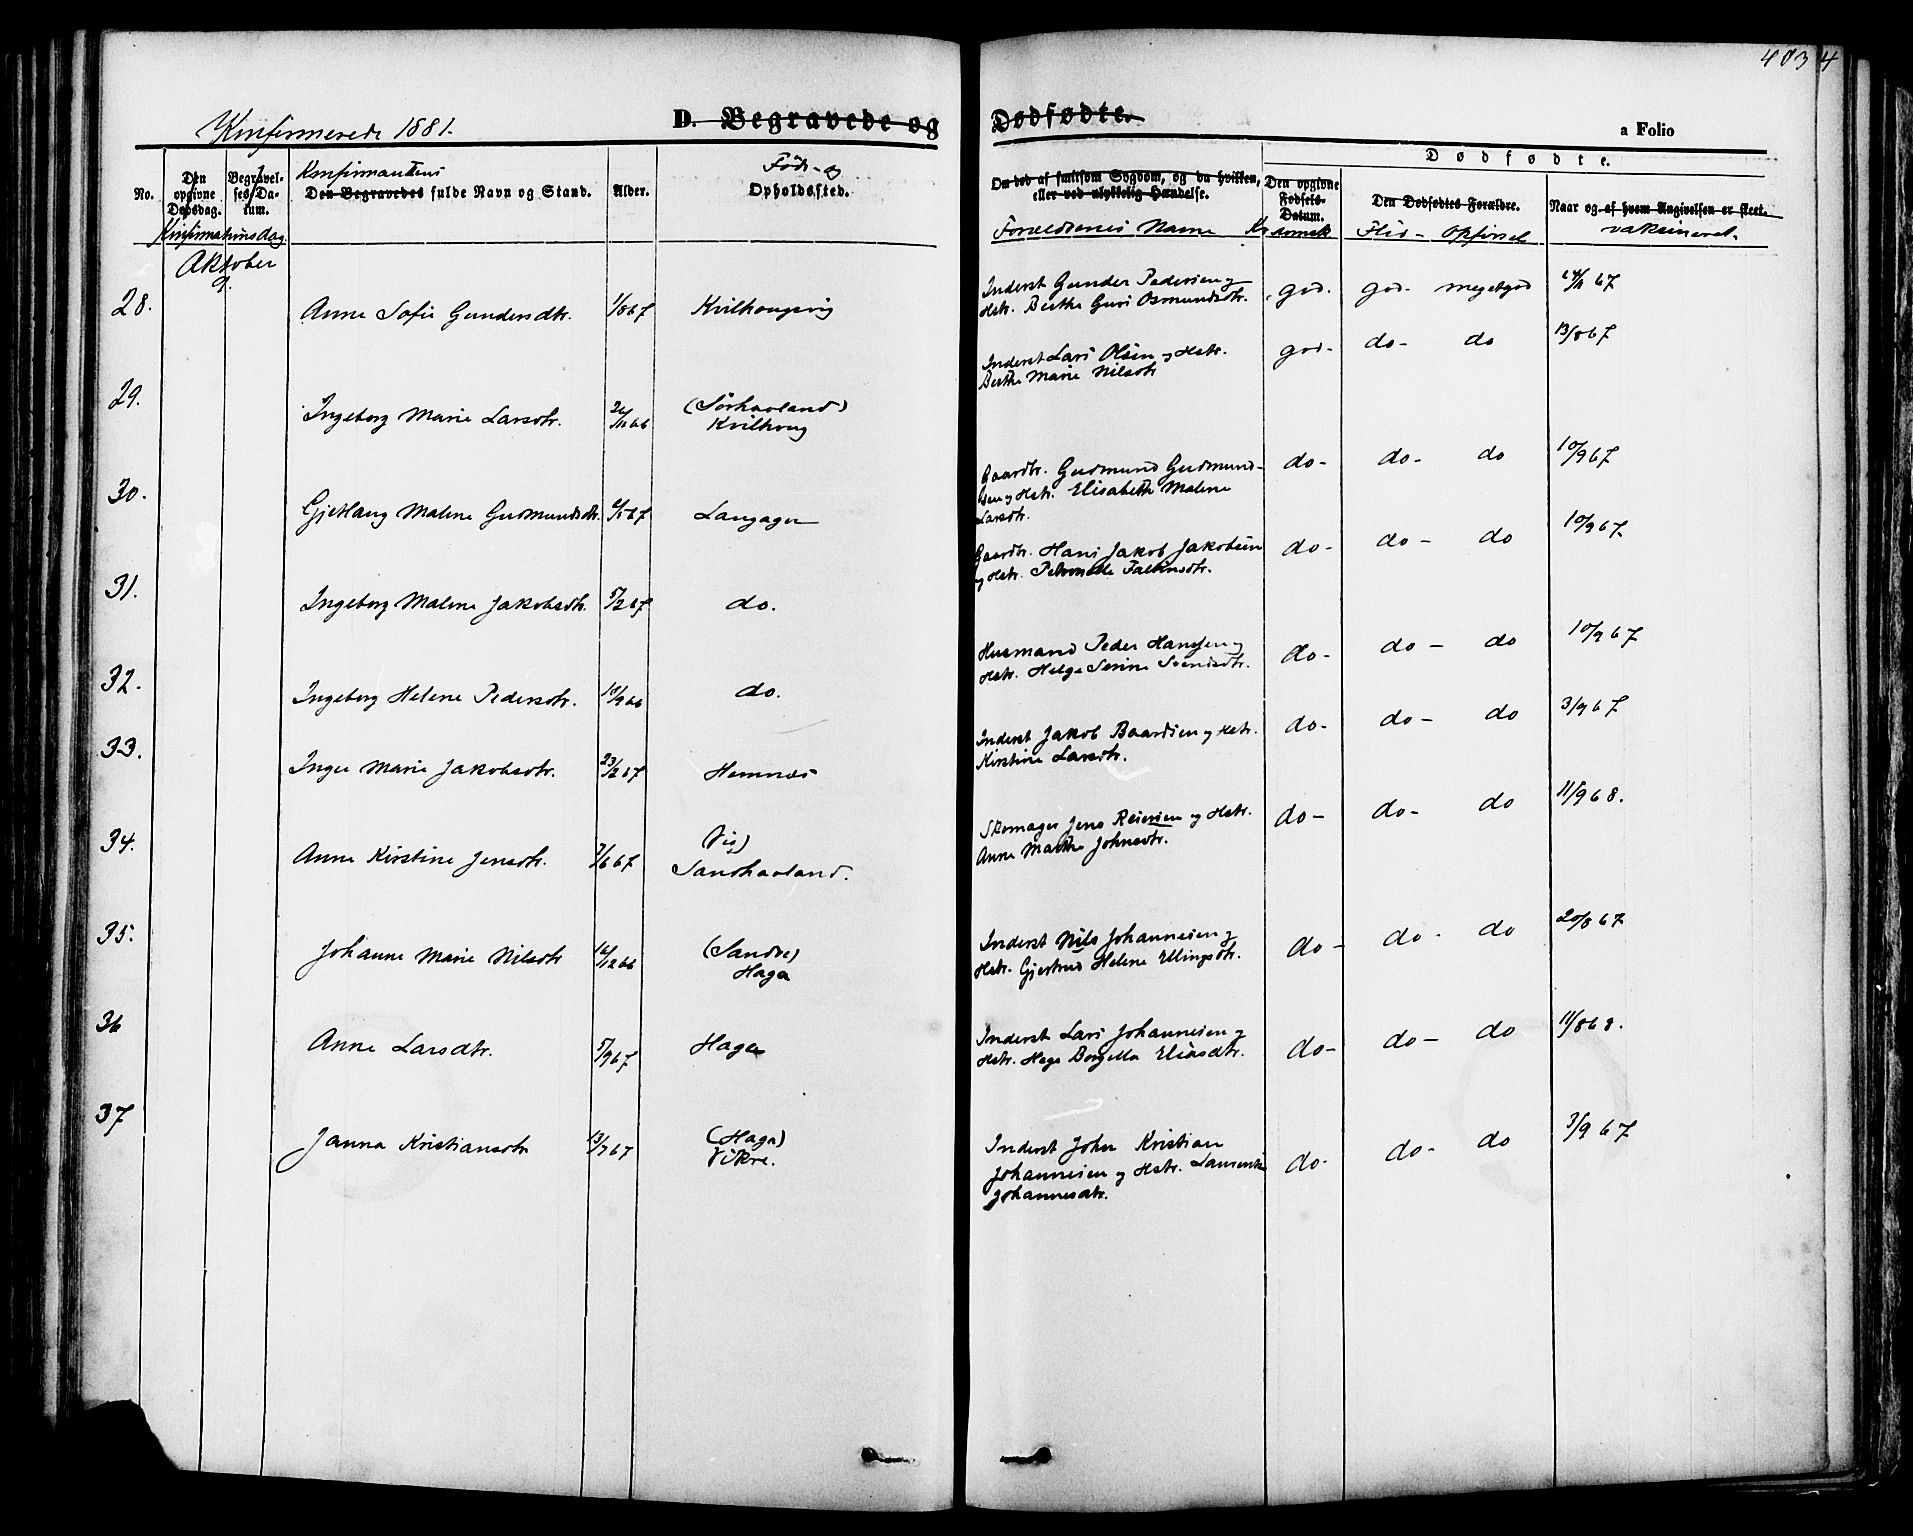 4034
Konfirmerede 1881.
D. Begravede og Dødfødte.
a Folio
No.
Den opgivne Dødsdag.
Begravelses-Datum.
Konfirmationsdag
Konfirmantens
Den Begravedes fulde Navn og Stand.
Alder.
Føde- og
Opholdssted.
Om død af smitsom Sygdom, og da hvilken,
eller ved ulykkelig Hændelse.
Forældrenes Navne
Den opgivne Fødsels-Datum.
Dødfødte.
Den Dødfødtes Forældre.
Flid - Opførsel
Naar og af hvem Angivelsen er skeet.
vaksineret.
Oktober
9.
28.
Anne Sofie Gundersdtr.
1/8 67
Inderst Gunder Pedersen og
Hstr. Berthe Guri Osmundsdtr.
god.
god.
meget god
67
29.
Ingeborg Marie Larsdtr.
(Sørhaaland)
Inderst Lars Olsen og Hstr.
Berthe Marie Nilsdtr
god-
do-
do
13/8 67
30.
Malene Gudmundsdtr.
Langager
Gaardbr. Gudmund Gudmund-
sen og Hstr. Elisabeth Malene
Larsdtr.
do-
do-
do
10/9 67
31.
Ingeborg Malene Jakobsdtr.
5/2 67
do.
Gaardbr. Hans Jakob Jakobsen
og Hstr. Petronelle Falkensdtr.
do-
do-
do
10/9 67
32.
Ingeborg Helene Pedersdtr.
10/9 66
do.
Husmand Peder Hansen og
Hstr. Helge Serine Svendsdtr.
do-
do-
do
10/9 67
33.
Inger Marie Jakobsdtr.
23/2 67
Hemnæs
Inderst Jakob Baardsen og Hstr.
Kirstine Larsdtr.
do-
do-
do
3/9 67
34.
Anne Kirstine Jensdtr.
7/6 67
(Vig)
Sandhaaland.
Skomager Jens Reiersen og Hstr.
Anne Marthe Johnsdtr.
do-
do-
do
11/9 68.
35.
Johanne Marie Nilsdtr
16/12 66
(Sandve)
Haga
Inderst Nils Johannesen og
Hstr. Gjertrud Helene Ellingsdtr.
do-
do-
do
20/8 67
36
Anne Larsdtr.
5/9 67
Haga
Inderst Lars Johannesen og
Hstr. Hege Borgella Eliasdtr.
do-
do-
do
11/8 68.
37
Janna Kristiansdtr
13/7 67
(Haga)
Vikre.
Inderst John Kristian
Johannesen og Hstr.
Johannesdtr.
do-
do-
do
3/9 67